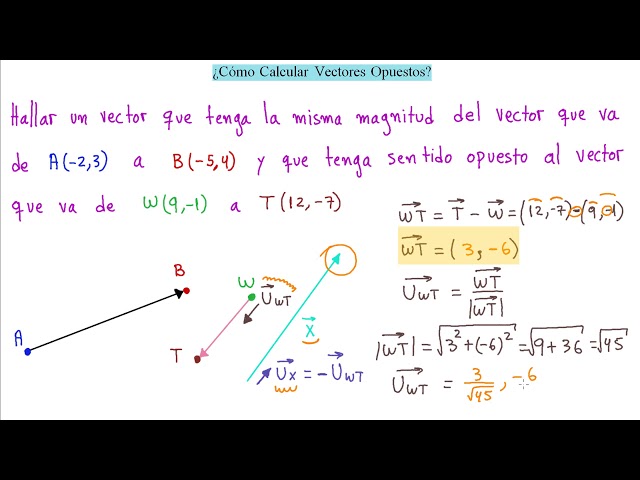 ¿Cómo Calcular Vectores Opuestos?
Hallar un vector que tenga la misma magnitud del vector que va
de A(-2,3) a B(-5,4) y que tenga sentido opuesto al vector
que va de W(9,-1) a T(12,-7)
WT = T - W = (12,-7)-(9,-1)
WT = (3,-6)
U_WT = WT / |WT|
|WT| = √3²+(-6)² = √9+36 = √45
U_WT = 3/√45, -6
B
A
W
U_WT
T
X
U_X = -U_WT